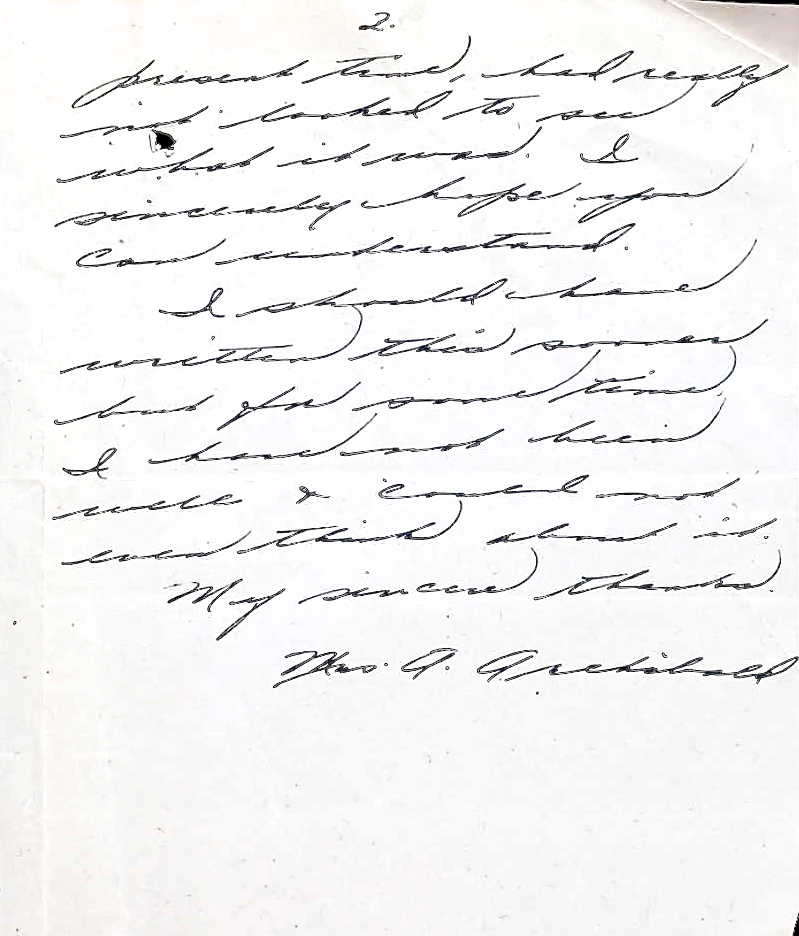 2.
present time, had really
not looked to see
what it was. I
sincerely hope you
can understand.
I should have
written this sooner
but for some time,
I have not been
well & could not
even think about it.
My sincere thanks.
Mrs. A. Archibald